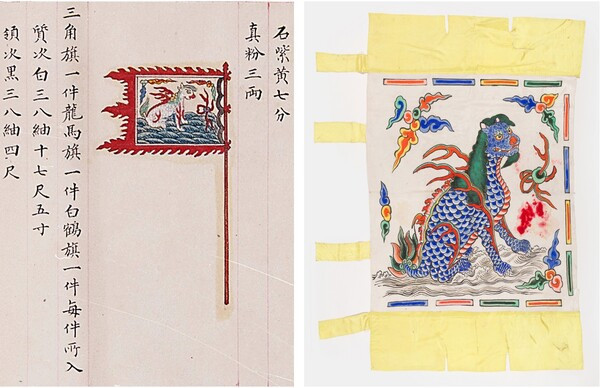 石紫黃七分
真粉三兩
三角旗一件龍馬旗一件白鶴旗一件每件所入
質次白三八紬十七尺五寸
領次黑三八紬四尺